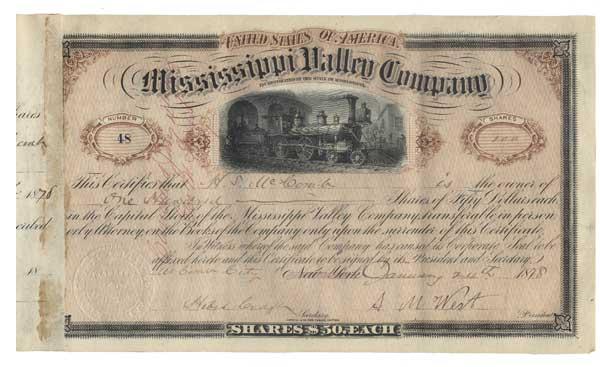 UNITED STATES OF AMERICA.
Mississippi Valley Company
NUMBER
48
SHARES
This Certifies that H S McComb is the owner of
One Hundred Shares of Fifty Dollars each
in the Capital Stock of the Mississippi Valley Company, transferable in person
or by Attorney, on the Books of the Company only upon the surrender of this Certificate.
In Witness whereof the said Company has caused its Corporate Seal to be
affixed hereto and this Certificate to be signed by its President and Secretary,
McComb City New York January 1878
S. M. West
Secretary.
President
SHARES $50, EACH
1878
18